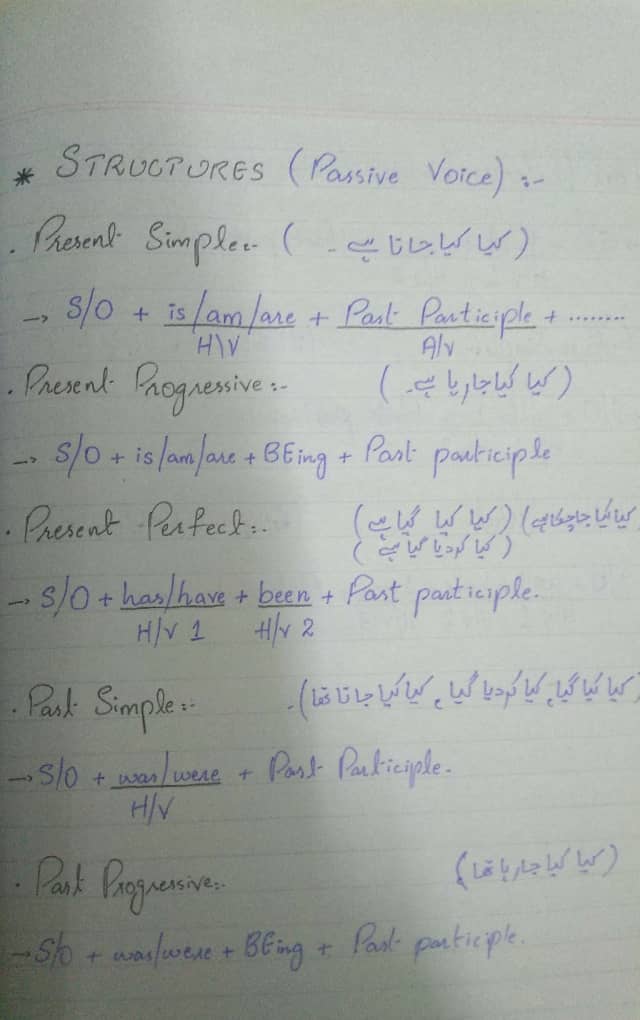 * STRUCTURES (Passive Voice) :-
. Present Simple:- ( کیا کیا جاتا ہے ۔ )
→ S/O + is/am/are + Past Participle + ........
H\V A/v
. Present Progressive :- ( کیا کیا جا رہا ہے۔ )
→ S/O + is/am/are + BEing + Past participle
. Present Perfect:- (کیا کیا گیا ہے) (کیا کیا جا چکا ہے)
( کیا کر دیا گیا ہے )
→ S/O + has/have + been + Past participle.
H/V 1 H/V 2
. Past Simple:- (کیا کیا گیا، کیا کر دیا گیا، کیا کیا جاتا تھا)۔
→ S/O + was/were + Past Participle.
H/V
. Past Progressive:- (کیا کیا جا رہا تھا)
→ S/O + was/were + BEing + Past participle.